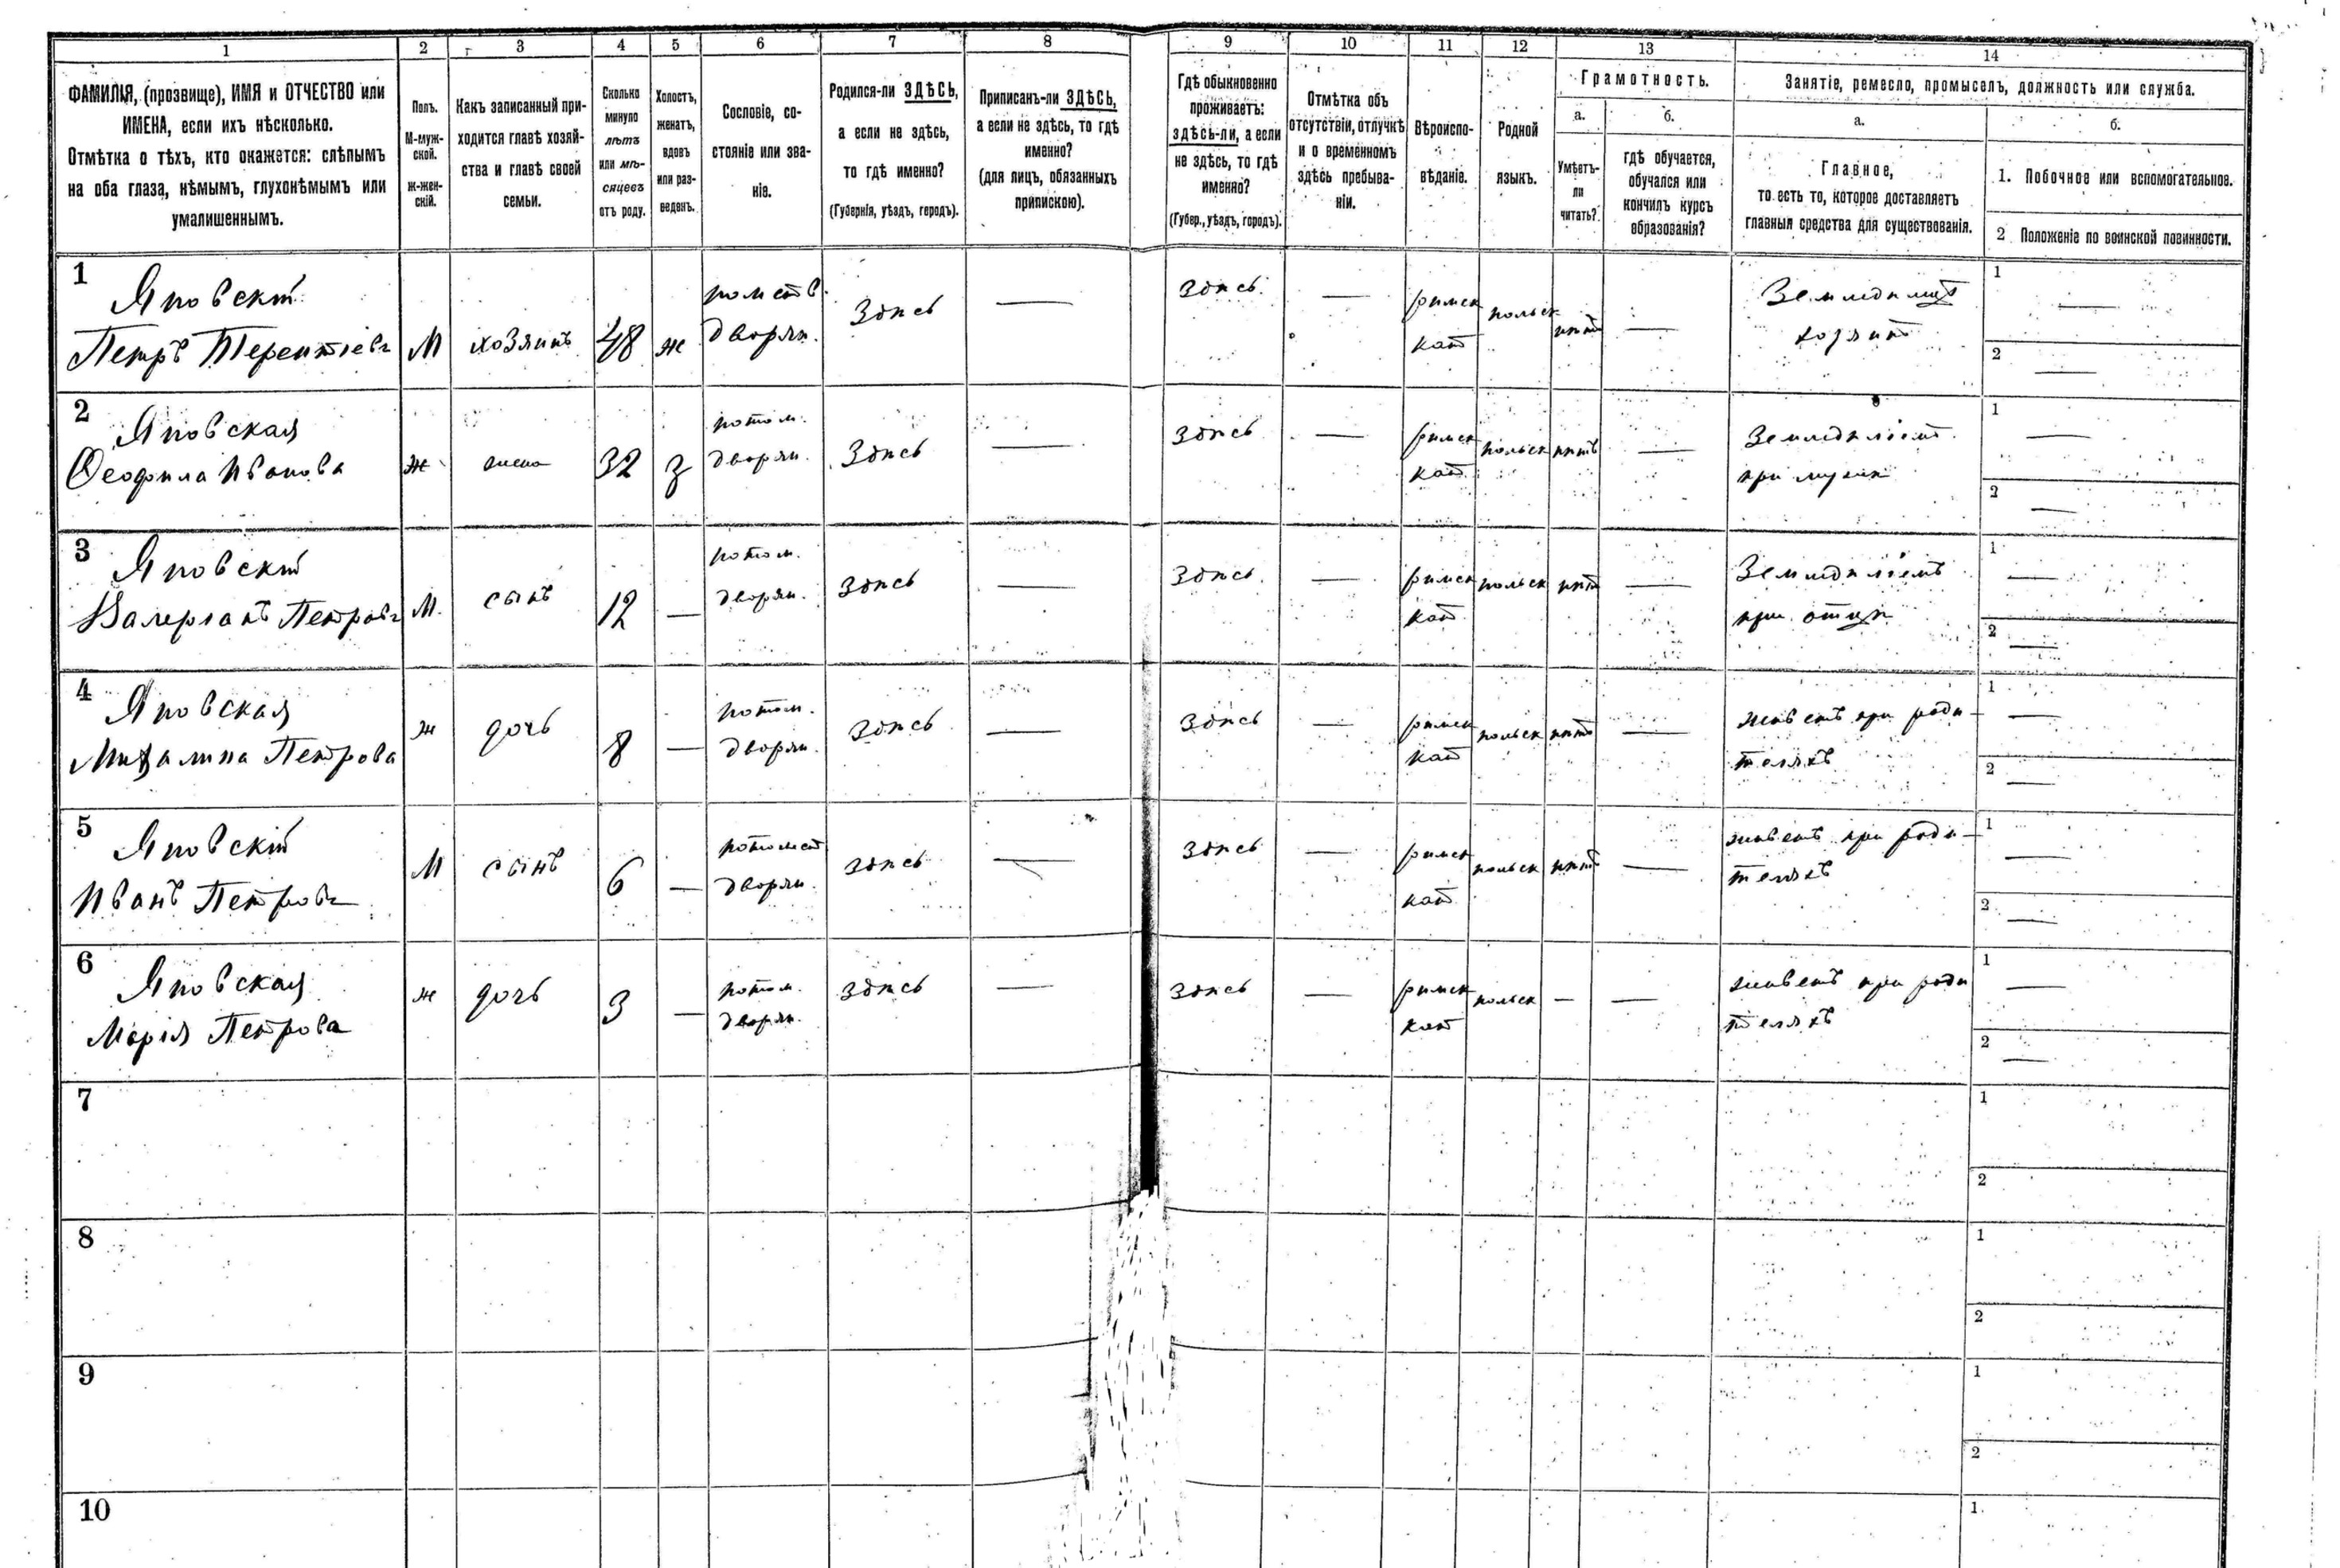 1 2 3 4 5 6 7 8 9 10 11 12 13 14
ФАМИЛІЯ, (прозвище), ИМЯ и ОТЧЕСТВО или
ИМЕНА, если ихъ нѣсколько.
Отмѣтка о тѣхъ, кто окажется: слѣпымъ
на оба глаза, нѣмымъ, глухонѣмымъ или
умалишеннымъ.
Полъ.
М-муж-
ской.
ж-жен-
скій.
Какъ записанный при-
ходится главѣ хозяй-
ства и главѣ своей
семьи.
Сколько
минуло
лѣтъ
или мѣ-
сяцевъ
отъ роду.
Холостъ,
женатъ,
вдовъ
или раз-
веденъ.
Сословіе, со-
стояніе или зва-
ніе.
Родился-ли ЗДѢСЬ,
а если не здѣсь,
то гдѣ именно?
(Губернія, уѣздъ, городъ).
Приписанъ-ли ЗДѢСЬ,
а если не здѣсь, то гдѣ
именно?
(для лицъ, обязанныхъ
припискою).
Гдѣ обыкновенно
проживаетъ:
здѣсь-ли, а если
не здѣсь, то гдѣ
именно?
(Губер., уѣздъ, городъ).
Отмѣтка объ
отсутствіи, отлучкѣ
и о временномъ
здѣсь пребыва-
ніи.
Вѣроиспо-
вѣданіе.
Родной
языкъ.
Грамотность.
а.
Умѣетъ-
ли
читать?
б.
гдѣ обучается,
обучался или
кончилъ курсъ
образованія?
Занятіе, ремесло, промыселъ, должность или служба.
а.
Главное,
то есть то, которое доставляетъ
главныя средства для существованія.
б.
1. Побочное или вспомогательное.
2 Положеніе по воинской повинности.
1
Яновскій
Петръ Терентіевъ
М
хозяинъ
48
ж
дворян.
Здѣсь
—
здѣсь
—
римск
кат
польск
нѣтъ
—
хозяинъ
1
—
2
—
2
Яновская
Ѳеофила Иванова
ж
жена
32
з
потом.
дворян.
Здѣсь
—
Здѣсь
—
римск
кат
польск
нѣтъ
—
Земледѣліемъ
при мужѣ
1
—
2
—
3
Яновскій
Валеріанъ Петровъ
М
сынъ
12
—
потом.
дворян.
Здѣсь
—
Здѣсь
—
римск
кат
польск
нѣтъ
—
Земледѣліемъ
при отцѣ
1
—
2
—
4
Яновская
Михалина Петрова
ж
дочь
8
—
потом.
дворян.
Здѣсь
—
Здѣсь
—
римск
кат
польск
нѣтъ
—
живетъ при роди-
теляхъ
1
—
2
—
5
Яновскій
Иванъ Петровъ
М
сынъ
6
—
потомст
дворян.
здѣсь
—
здѣсь
—
римск
кат
польск
нѣтъ
—
живетъ при роди-
теляхъ
1
—
2
—
6
Яновская
Марія Петрова
ж
дочь
3
—
потом.
дворян.
здѣсь
—
здѣсь
—
римск
кат
польск
—
—
живетъ при роди
теляхъ
1
—
2
—
7
1
2
8
1
2
9
1
2
10
1